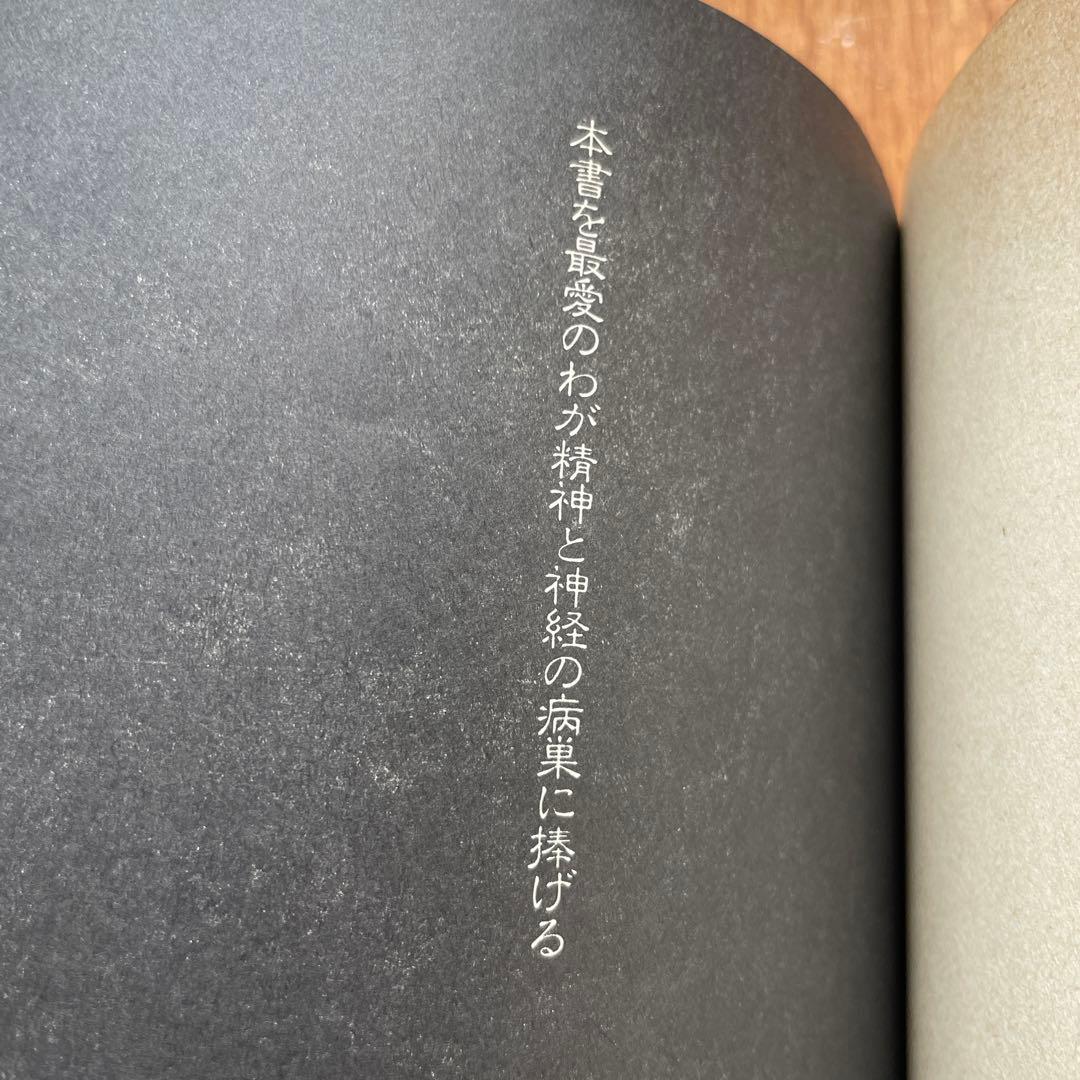 本書を最愛のわが精神と神経の病巣に捧げる